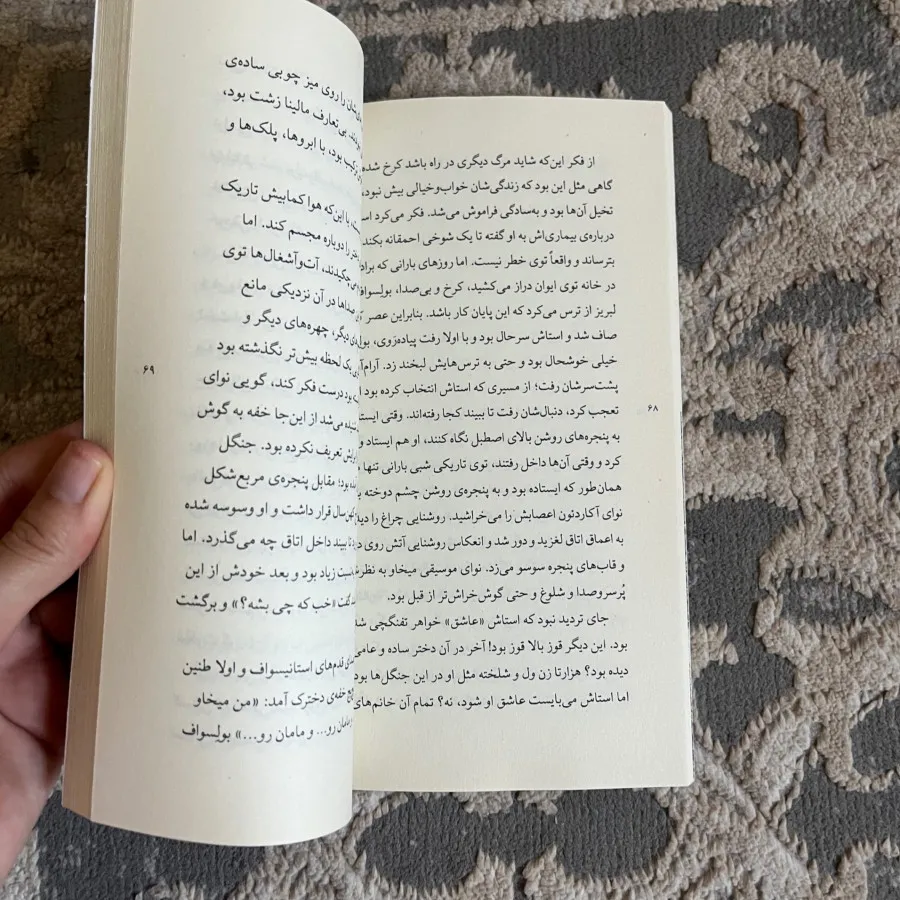 از فکر این‌که شاید مرگ دیگری در راه باشد کرخ شده
گاهی مثل این بود که زندگی‌شان خواب‌وخیالی بیش نبود،
تخیل آن‌ها بود و به‌سادگی فراموش می‌شد. فکر می‌کرد
درباره‌ی بیماری‌اش به او گفته تا یک شوخی احمقانه بکند
بترساند و واقعاً توی خطر نیست. اما روزهای بارانی که
در خانه توی ایوان دراز می‌کشید، کرخ و بی‌صدا،
لبریز از ترس می‌کرد که این پایان کار باشد. بنابراین عصر
صاف شد و استاش سرحال بود و با اولا رفت پیاده‌روی،
خیلی خوشحال بود و حتی به ترس‌هایش لبخند زد.
پشت‌سرشان رفت؛ از مسیری که استاش انتخاب کرده بود
تعجب کرد، دنبال‌شان رفت تا ببیند کجا رفته‌اند. وقتی
به پنجره‌های روشن بالای اصطبل نگاه کنند، او هم ایستاد و
کرد و وقتی آن‌ها داخل رفتند، توی تاریکی شبی بارانی تنها
همان‌طور که ایستاده بود و به پنجره‌ی روشن چشم دوخته
نوای آکاردئون اعصابش را می‌خراشید. روشنایی چراغ را
به اعماق اتاق لغزید و دور شد و انعکاس روشنایی آتش روی
و قاب‌های پنجره سوسو می‌زد. نوای موسیقی میخاو به
پُرسروصدا و شلوغ و حتی گوش‌خراش‌تر از قبل بود.
جای تردید نبود که استاش «عاشق» خواهر تفنگچی
بود. این دیگر قوز بالا قوز بود! آخر در آن دختر ساده و عامی
دیده بود؟ هزارتا زن ول و شلخته مثل او در این جنگل‌ها بود
اما استاش می‌بایست عاشق او شود، نه؟ تمام آن خانم‌های
۶۸
را روی میز چوبی ساده‌ی
بی‌تعارف مالینا زشت بود،
بود، با ابروها، پلک‌ها و
با این‌که هوا کمابیش تاریک
را دوباره مجسم کند. اما
آت‌وآشغال‌ها توی
در آن نزدیکی مانع
دیگر، چهره‌های دیگر و
یک لحظه بیش‌تر نگذشته بود
بود درست فکر کند، گویی نوای
می‌شد از این جا خفه به گوش
تعریف نکرده بود. جنگل
بود؛ مقابل پنجره‌ی مربع‌شکل
سال قرار داشت و او وسوسه شده
تا ببیند داخل اتاق چه می‌گذرد. اما
زیاد بود و بعد خودش از این
«خب که چی بشه؟» و برگشت
قدم‌های استانیسواف و اولا طنین
خفه‌ی دخترک آمد: «من میخاو
رو... و مامان رو...» بولسواف
۶۹